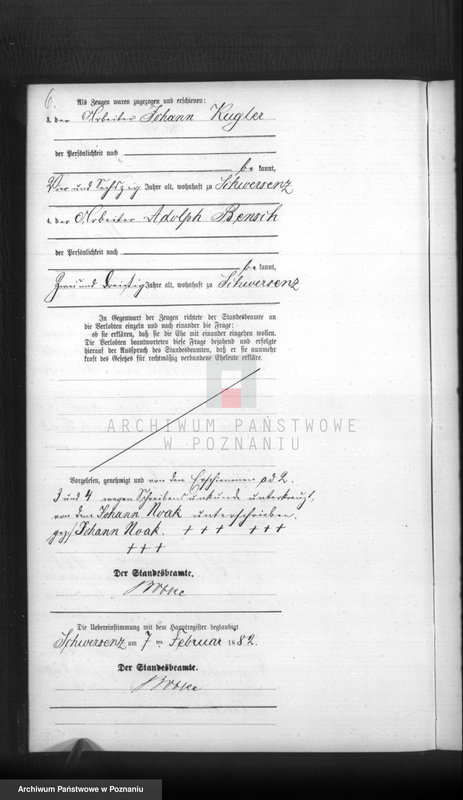 6.
Als Zeugen waren zugezogen und erschienen:
3. der Arbeiter Johann Kugler
der Persönlichkeit nach
be kannt,
Vier und Sechszig Jahre alt, wohnhaft zu Schwersenz
4. der Arbeiter Adolph Bensch
der Persönlichkeit nach
be kannt,
Zwei und dreißig Jahre alt, wohnhaft zu Schwersenz
In Gegenwart der Zeugen richtete der Standesbeamte an
die Verlobten einzeln und nach einander die Frage:
ob sie erklären, daß sie die Ehe mit einander eingehen wollen.
Die Verlobten beantworteten diese Frage bejahend und erfolgte
hierauf der Ausspruch des Standesbeamten, daß er sie nunmehr
kraft des Gesetzes für rechtmäßig verbundene Eheleute erkläre.
ARCHIWUM PAŃSTWOWE
W POZNANIU
Vorgelesen, genehmigt und von den Erschienenen ad 2.
3 und 4 wegen Schreibensunkunde unterkreuzt,
von dem Johann Noak unterschrieben.
gez/ Johann Noak. +++ +++
+++
Der Standesbeamte.
Die Uebereinstimmung mit dem Hauptregister beglaubigt
Schwersenz am 7 ten Februar 1882.
Der Standesbeamte.
Archiwum Państwowe w Poznaniu